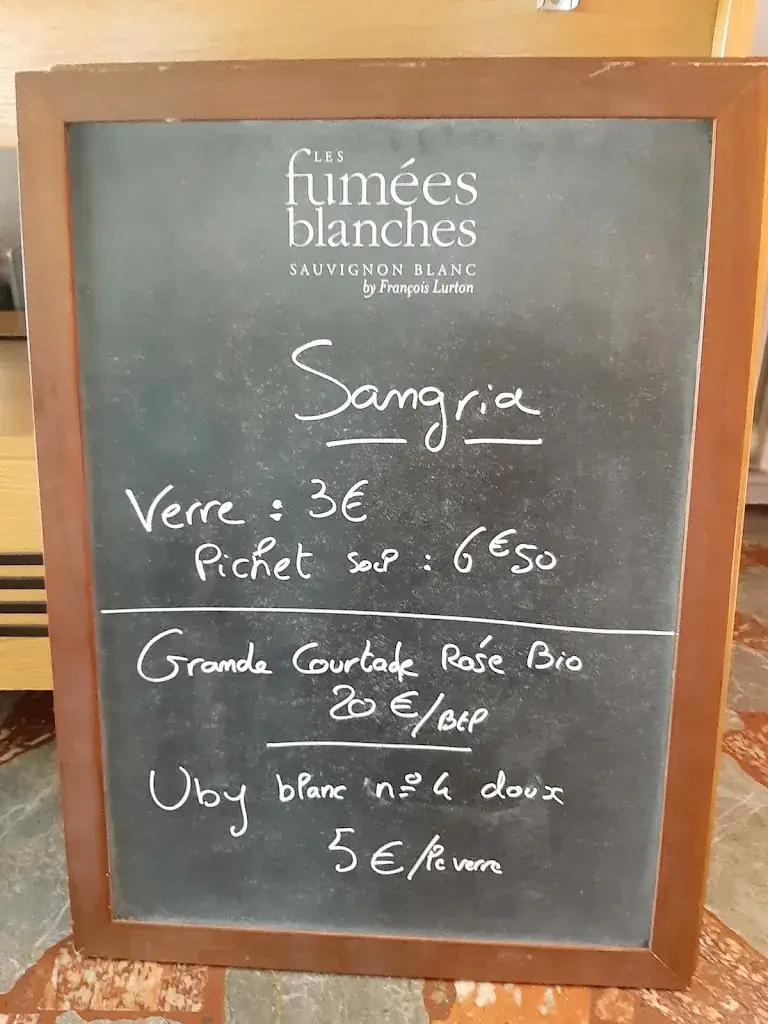 LES
fumées
blanches
SAUVIGNON BLANC
by François Lurton
Sangria
Verre : 3€
Pichet 50cl : 6€50
Grande Courtade Rosé Bio
20 €/Btl
Uby blanc n° 4 doux
5 €/le verre